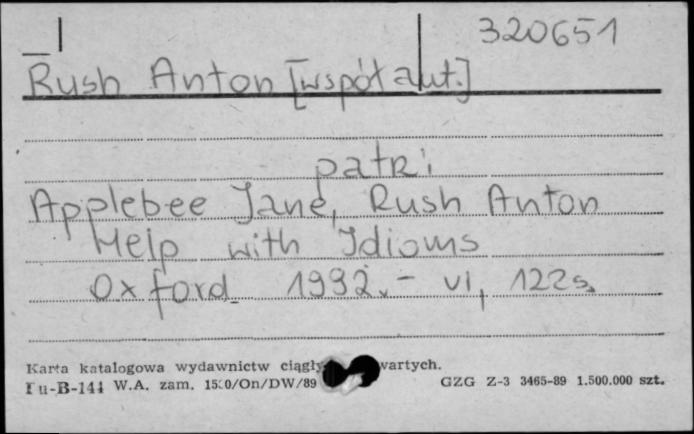 320651
Rush Anton [współaut.]
patrz
Applebee Jane, Rush Anton
Help with Idioms
Oxford 1992.- vi, 122s.
Karta katalogowa wydawnictw
W.A. zam. /On/DW/89 GZG Z-3 3465-89 1.500.000 szt.